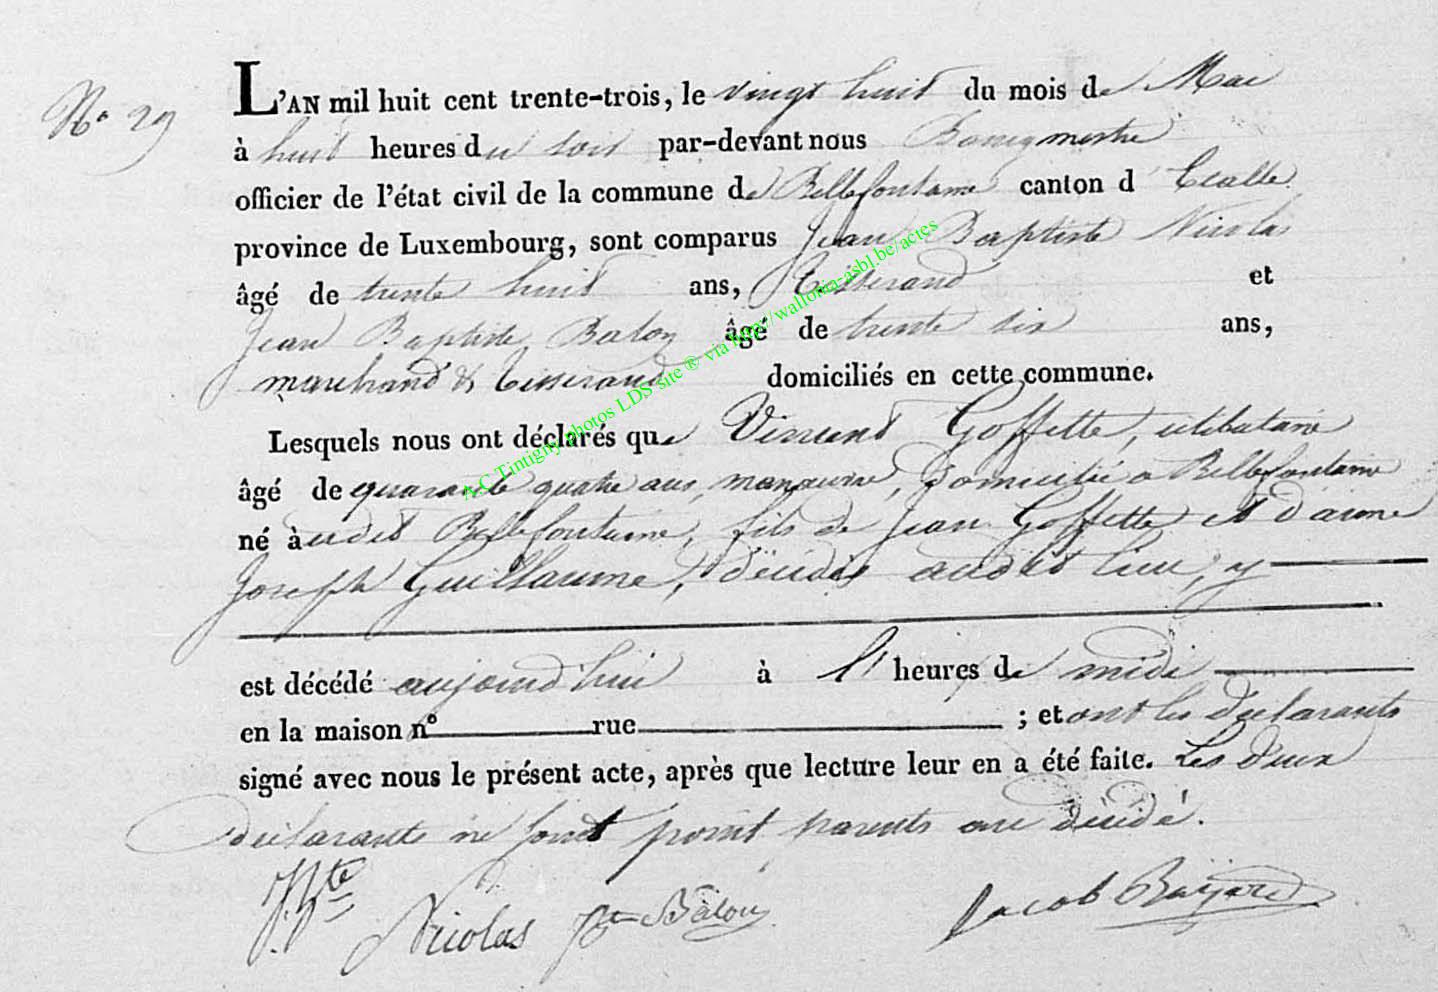 No 29
L'AN mil huit cent trente-trois, le vingt huit du mois de Mai
à huit heures du soir par-devant nous Bourgmestre
officier de l'état civil de la commune de Bellefontaine canton d' Etalle
province de Luxembourg, sont comparus Jean Baptiste Nicolas
âgé de trente huit ans, Tisserand et
Jean Baptiste Balon âgé de trente six ans,
marchand & Tisserand domiciliés en cette commune.
Lesquels nous ont déclarés que Vincent Goffette, célibataire
âgé de quarante quatre ans, manœuvre, domicilié a Bellefontaine
né à udit Bellefontaine, fils de Jean Goffette et d'anne
Joseph Guillaume, décédés audit lieu, y
est décédé aujourd'hui à heures de midi
en la maison n° rue ; et ont les déclarants
signé avec nous le présent acte, après que lecture leur en a été faite. Les deux
déclarants ne sont point parents au décédé.
J. Bte Nicolas J Bte Balon Jacob Bayard
A.C Tintigny photos LDS site ® via http://wallonia-asbl.be/actes